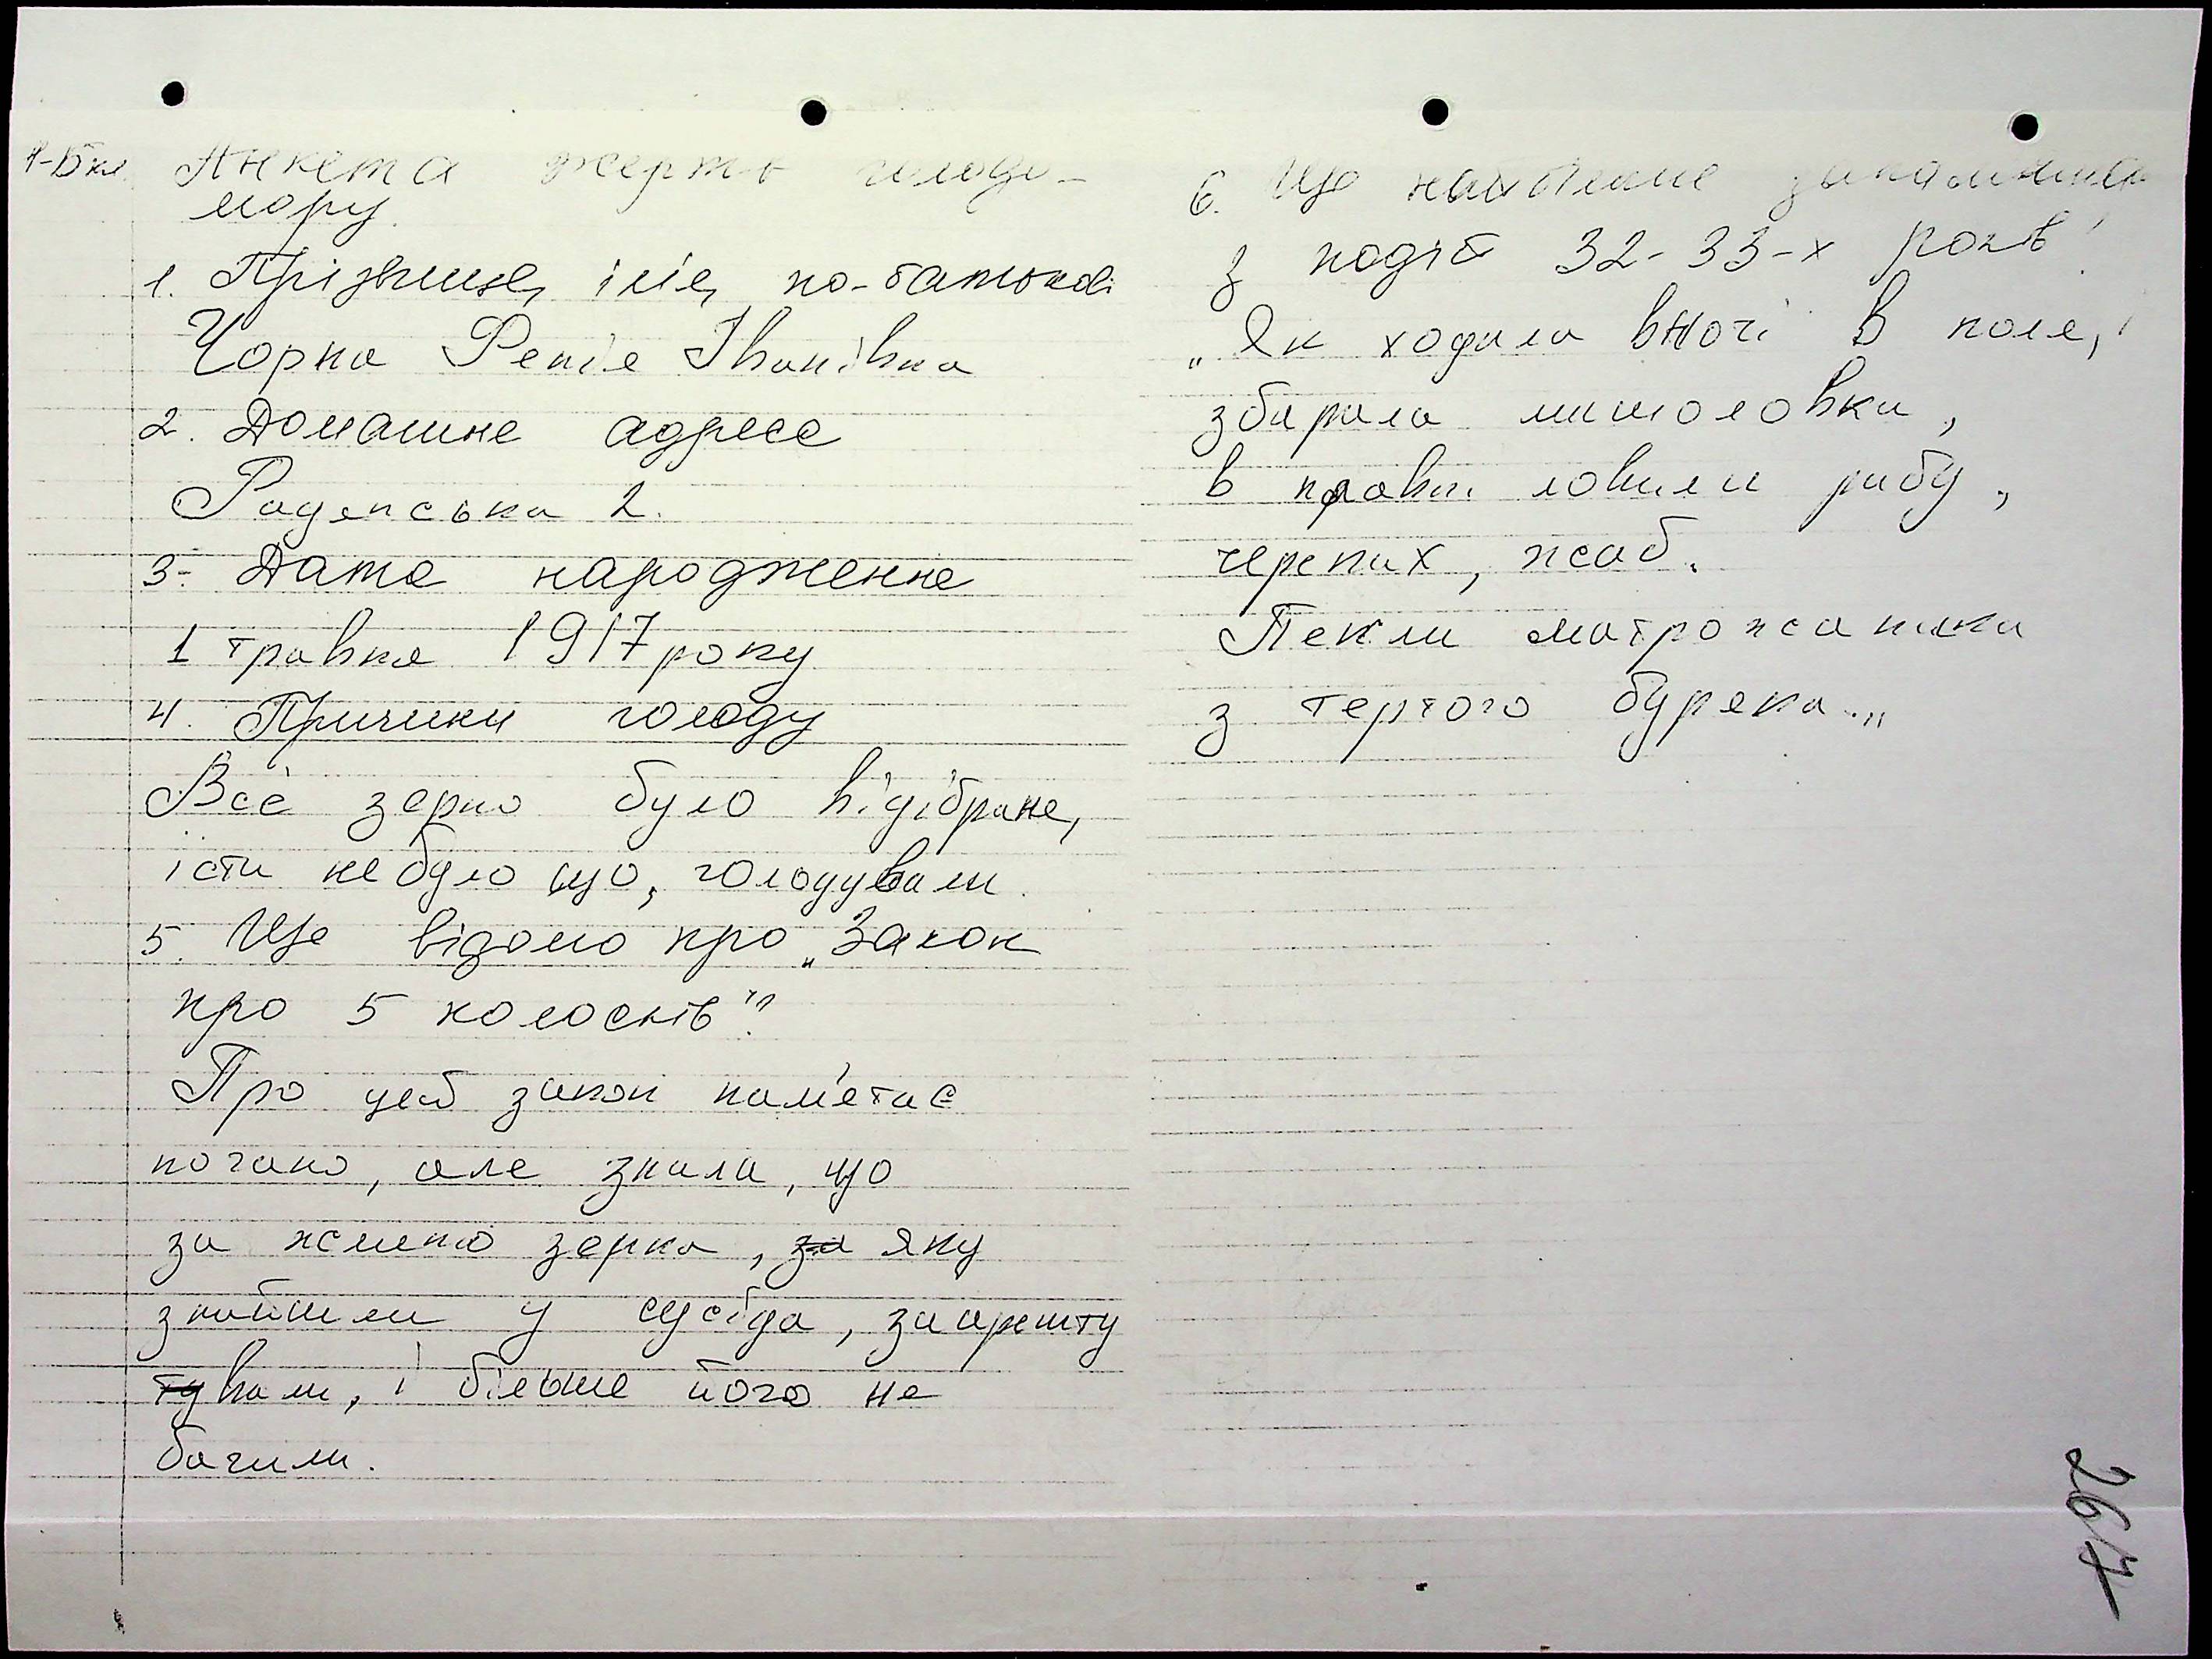 Анкета жертв голодо-
мору.
1. Прізвище, ім'я, по-батькові
Чорна Ренія Іванівна
2. Домашня адреса
Радянська 2.
3. Дата народження
1 травня 1917 року
4. Причини голоду
Все зерно було відібране,
їсти не було що, голодували.
5. Що відомо про „Закон
про 5 колосків"?
Про цей закон пам'ятає
погано, але знала, що
за жменю зерна, за яку
знайшли у сусіда, заарешту
тували, і більше його не
бачили.
6. Що найбільше запам'яталося
з подій 32-33-х років?
„Як ходила вночі в поле,
збирала колоски,
в ловили рибу,
черепах, жаб.
Пекли маторженики
з тертого буряка."
267